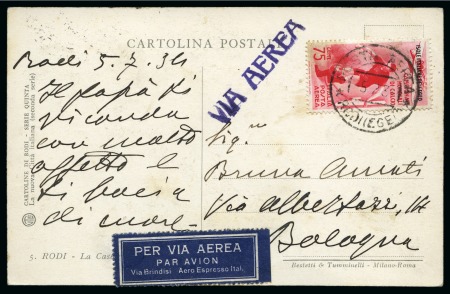 CARTOLINA POSTALE
Rodi 5.7.34
Il papà ti
ricorda
con molto
affetto e
ti bacia
di cuore
VIA AEREA
75
POSTA
AEREA
Sig.na
Bruna Amati
Via Albertazzi, 14
Bologna
CARTOLINE DI RODI - SERIE QUINTA
La nuova città italiana (seconda serie)
5. RODI - La Casa
PER VIA AEREA
PAR AVION
Via Brindisi Aero Espresso Ital.
Bestetti & Tumminelli - Milano-Roma